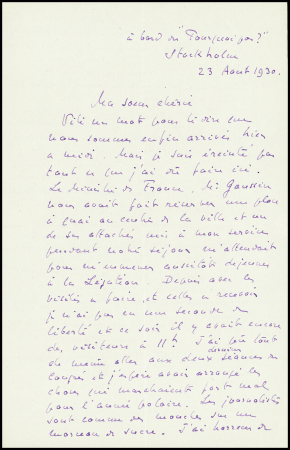 à bord du "Pourquoi pas?"
Stockholm
23 Aout 1930.
Ma soeur chérie
Vite un mot pour te dire que
nous sommes enfin arrivés hier
a midi. Mais je suis éreinté par
tout ce que j'ai dû faire ici.
Le Ministre de France, Mr Gaussen
nous avait fait réserver une place
à quai au centre de la ville et un
de ses attachés mis à mon service
pendant notre séjour m'attendait
pour m'emmener aussitôt déjeuner
à la Légation. Depuis avec les
visites a faire et celles a recevoir
je n'ai pas eu une seconde de
liberté et ce soir il y avait encore
des visiteurs à 11h. J'ai pu tout
de même aller aux deux dernières séances du
congrès et j'espère avoir arrangé les
choses qui marchaient fort mal
pour l'année polaire. Les journalistes
sont comme des mouches sur un
morceau de sucre. J'ai horreur de